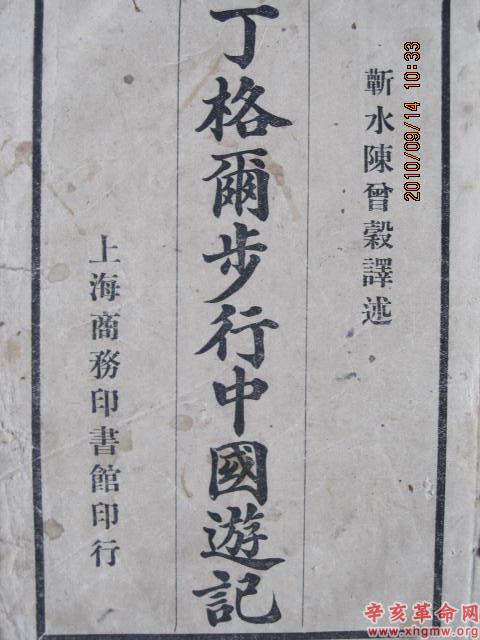 蘄水陳曾穀譯述
丁格爾步行中國遊記
上海商務印書館印行
2010/09/14 10:33
辛亥革命网
www.xhgmw.org